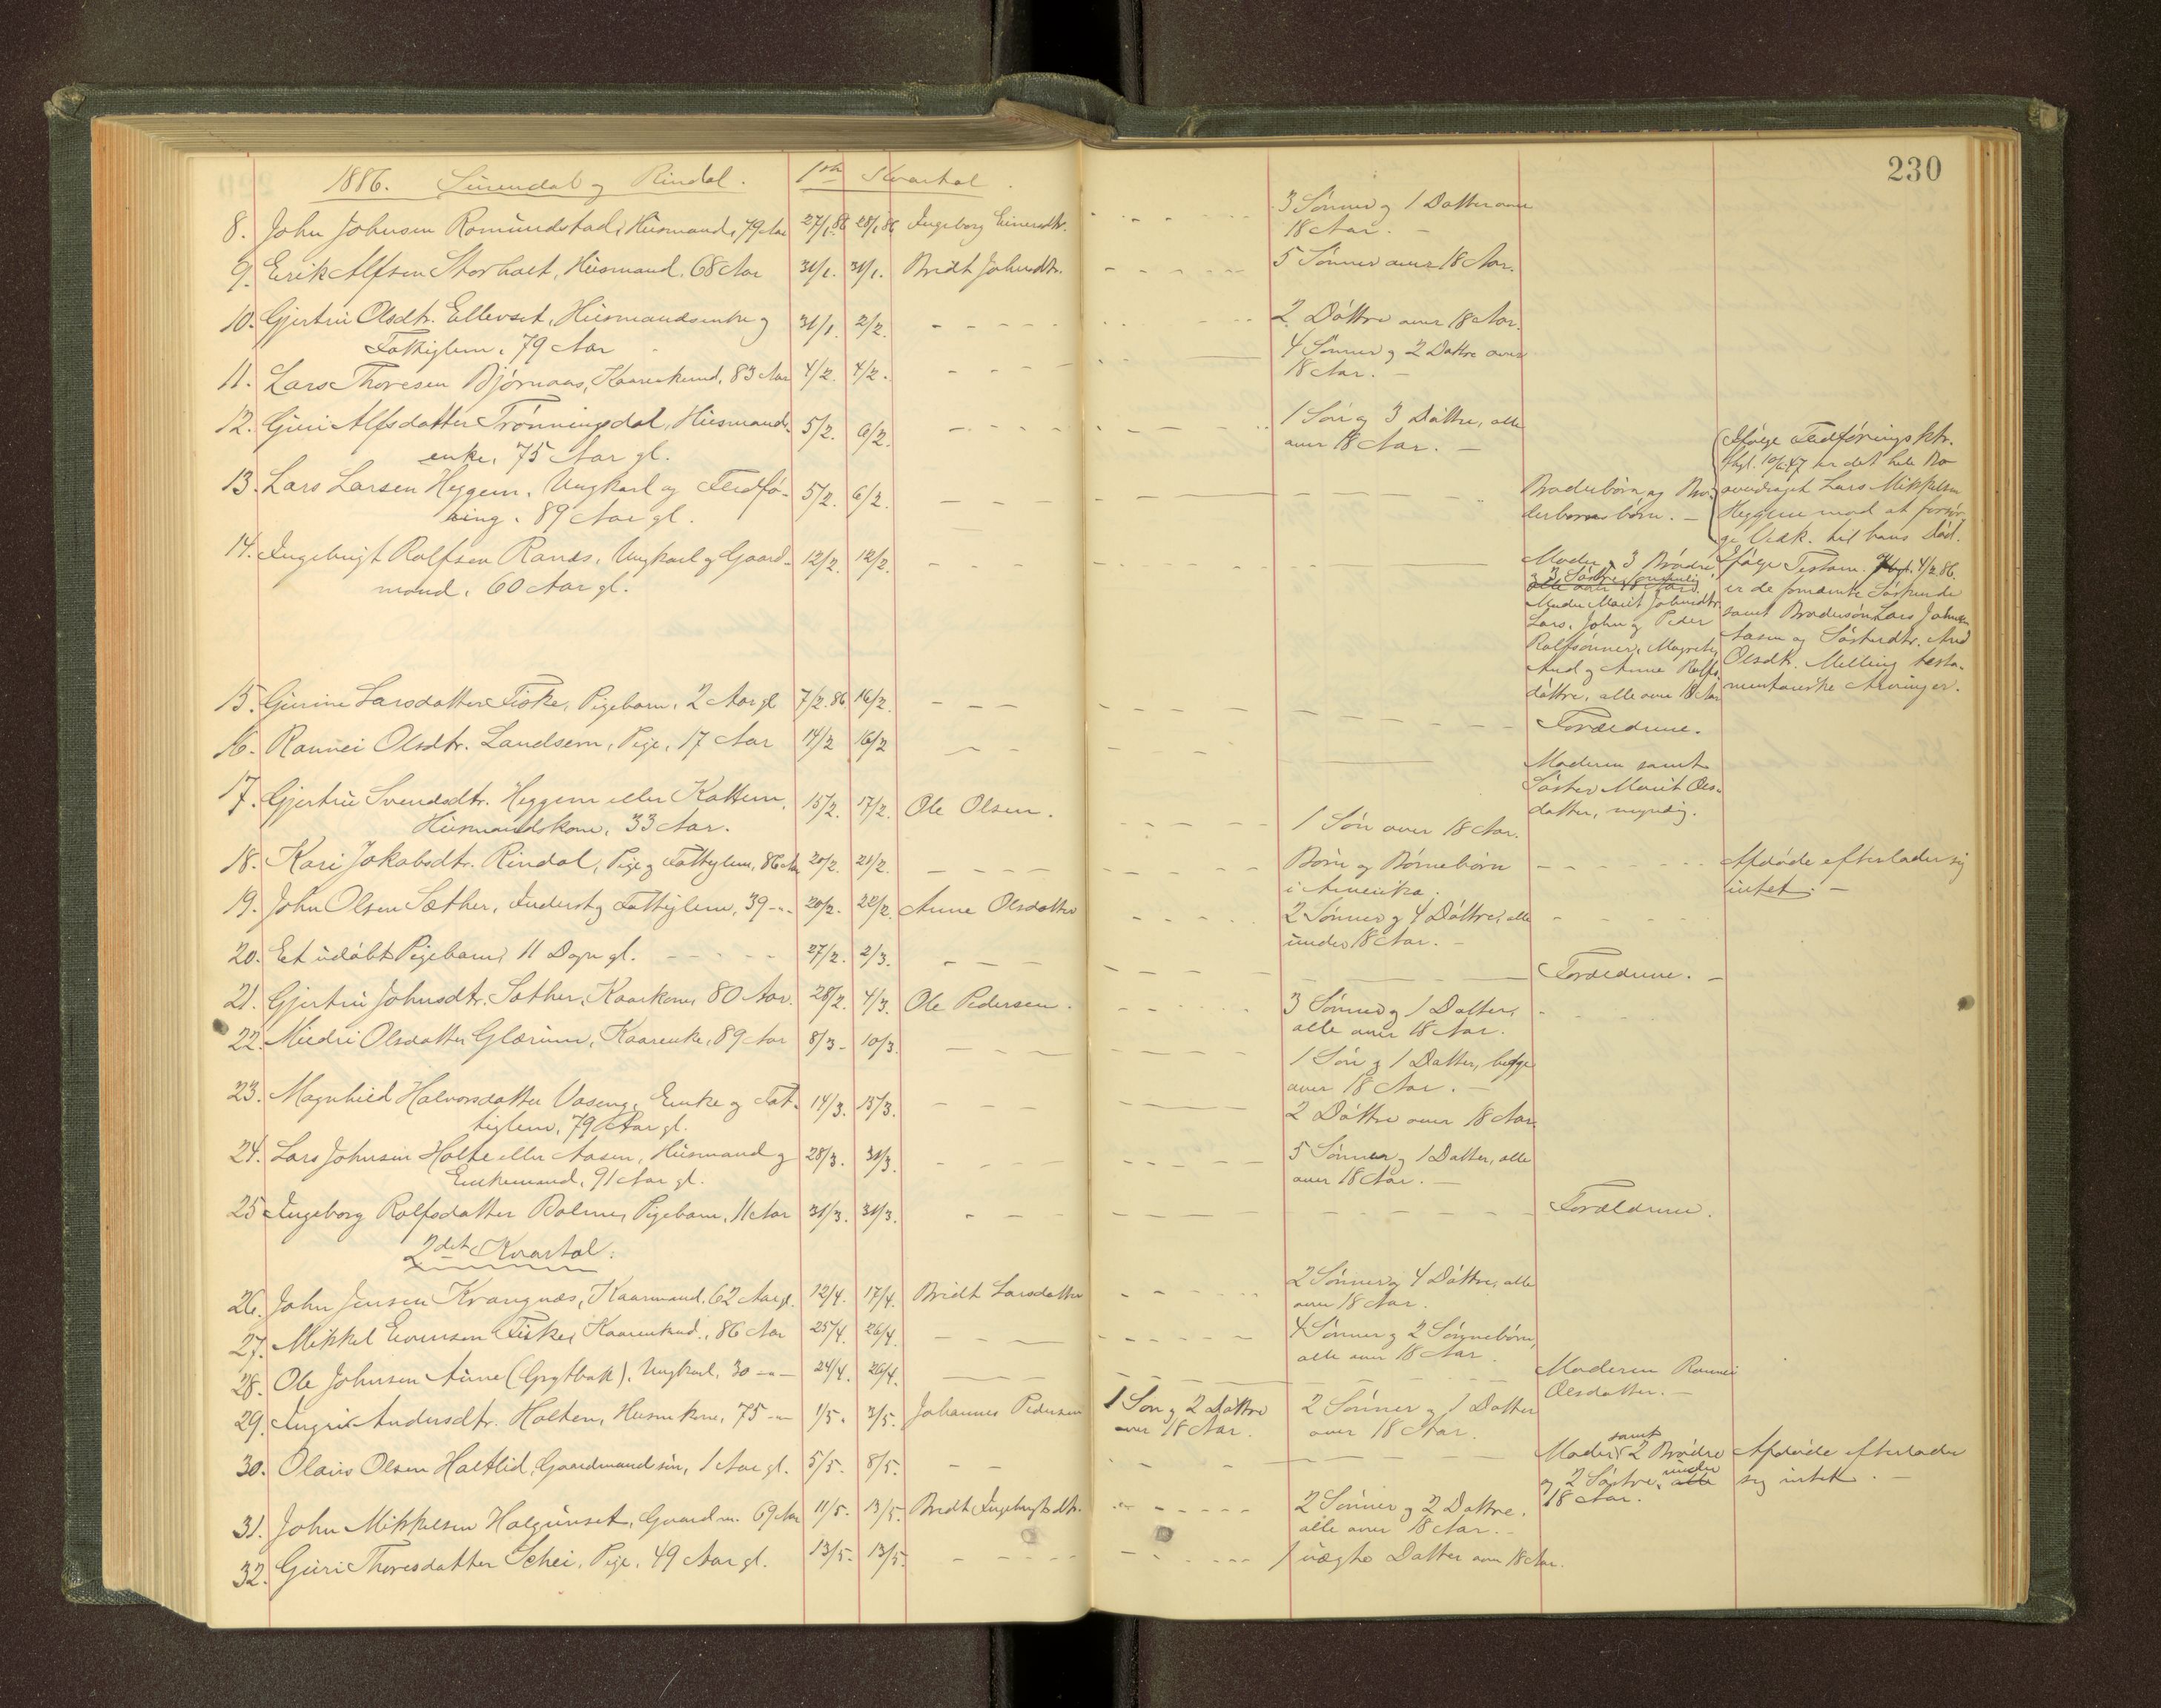 230
1886. Surendal og Rindal. 1ste Kvartal.
8. John Johnsen Romundstad, Husmand, 79 Aar 27/1.86 28/1.86 Ingeborg Einersdtr. 3 Sønner og 1 Datter over
18 Aar. —
9. Erik Alfsen Storholt, Husmand. 68 Aar 31/1. 31/1. Bridt Johnsdtr. 5 Sønner over 18 Aar.
10. Gjertru Olsdtr. Ellevset, Husmandsenke og 31/1 2/2. 2 Døttre over 18 Aar.
Fattiglem, 79 Aar
11. Lars Thoresen Bjørnaas, Kaarenkemd, 83 Aar 4/2. 4/2. 4 Sønner og 2 Døttre over
18 Aar. —
12. Guri Alfsdatter Trønningsdal, Husmands- 5/2. 6/2. 1 Søn og 3 Døttre, alle
enke, 75 Aar gl. over 18 Aar. —
13. Lars Larsen Heggem, Ungkarl og Fledfø- 5/2. 6/2. Broderbørn og Bro-
ring. 89 Aar gl. derbørns børn. —
Ifølge Fledføringsktr.
thgl. 10/6.47 er det hele Bo
overdraget Lars Mikkelsen
Heggem mod at forsør-
ge Vedk. til hans Død.
14. Ingebrigt Rolfsen Ranæs, Ungkarl og Gaard- 12/2. 12/2.
mand, 60 Aar gl.
Moder, 3 Brødre
og 3 Søstre, myndig
alle over 18 Aar.
Moder Marit Johnsdtr.
Lars, John og Peder
Rolfsønner, Magrete,
Aud og Anne Rolfs-
døttre, alle over 18 Aar
Ifølge Testam. 4/2 86.
er de fornævnte Søskende
samt Brodersøn Lars Johnsen
Aasen og Søsterdtr. Aud
Olsdtr. Melling testa-
mentariske Arvinger.
15. Gurine Larsdatter Fiske, Pigebarn, 2 Aar gl 7/2.86 16/2. Forældrene.
16. Rannei Olsdtr. Landsem, Pige, 17 Aar 14/2 16/2 Moderen samt
Søster Marit Ols-
datter, myndig.
17. Gjertru Svendsdtr. Heggem eller Kattem, 15/2. 17/2. Ole Olsen. 1 Søn over 18 Aar.
Husmandskone, 33 Aar.
18. Kari Jakobsdtr. Rindal, Pige og Fattiglem, 86 Aar 20/2. 21/2. Børn og Børnebørn Afdøde efterlader sig
i Amerika. intet. —
19. John Olsen Sæther, Inderst og Fattiglem, 39 -"- 20/2. 22/2. Anne Olsdatter 2 Sønner og 4 Døttre, alle
under 18 Aar. —
20. Et udøbt Pigebarn, 11 Dage gl. 27/2. 2/3. Forældrene. —
21. Gjertru Johnsdtr. Sæther, Kaarkone, 80 Aar. 28/2. 4/3. Ole Pedersen. 3 Sønner og 1 Datter,
alle over 18 Aar.
22. Olsdatter Glærum, Kaarenke, 89 Aar 8/3 - 10/3. 1 Søn og 1 Datter, begge
over 18 Aar. —
23. Magnhild Halvorsdatter Vaseng, Enke og Fat- 14/3. 15/3. 2 Døttre over 18 Aar.
tiglem, 79 Aar gl.
24. Lars Johnsen Holte eller Aasen, Husmand og 28/3. 31/3. 5 Sønner og 1 Datter, alle
Enkemand, 91 Aar gl. over 18 Aar. —
25 Ingeborg Rolfsdatter Bolme, Pigebarn, 11 Aar 31/3. 31/3. Forældrene.
2det Kvartal.
26. John Jensen Krangnæs, Kaarmand, 62 Aar gl. 12/4. 17/4. Bridt Larsdatter 2 Sønner og 4 Døttre, alle
over 18 Aar.
27. Mikkel Evensen Fiske, Kaarenkmd., 86 Aar 25/4. 26/4. 4 Sønner og 2 Sønnebørn,
alle over 18 Aar.
28. Ole Johnsen Aune (Grytbak), Ungkarl, 30 -"- 24/4. 26/4. Moderen Rannei
Olsdatter. —
29. Ingri Andersdtr. Holten, Husmkone, 75 -"- 1/5. 3/5. Johannes Pedersen 1 Søn og 2 Døttre 2 Sønner og 1 Datter
over 18 Aar. over 18 Aar.
30. Olaus Olsen Haltlid, Gaardmandssøn, 1 Aar gl. 5/5. 8/5. Moder samt 2 Brødre Afdøde efterlader
og 2 Søstre, alle under sig intet. —
18 Aar.
31. John Mikkelsen Holgunset, Gaardm. 69 Aar 11/5. 13/5. Bridt Ingebrigtsdtr. 2 Sønner og 2 Døttre.
alle over 18 Aar. —
32. Guri Thoresdatter Schei, Pige, 49 Aar gl. 13/5. 13/5. 1 uægte Datter over 18 Aar.